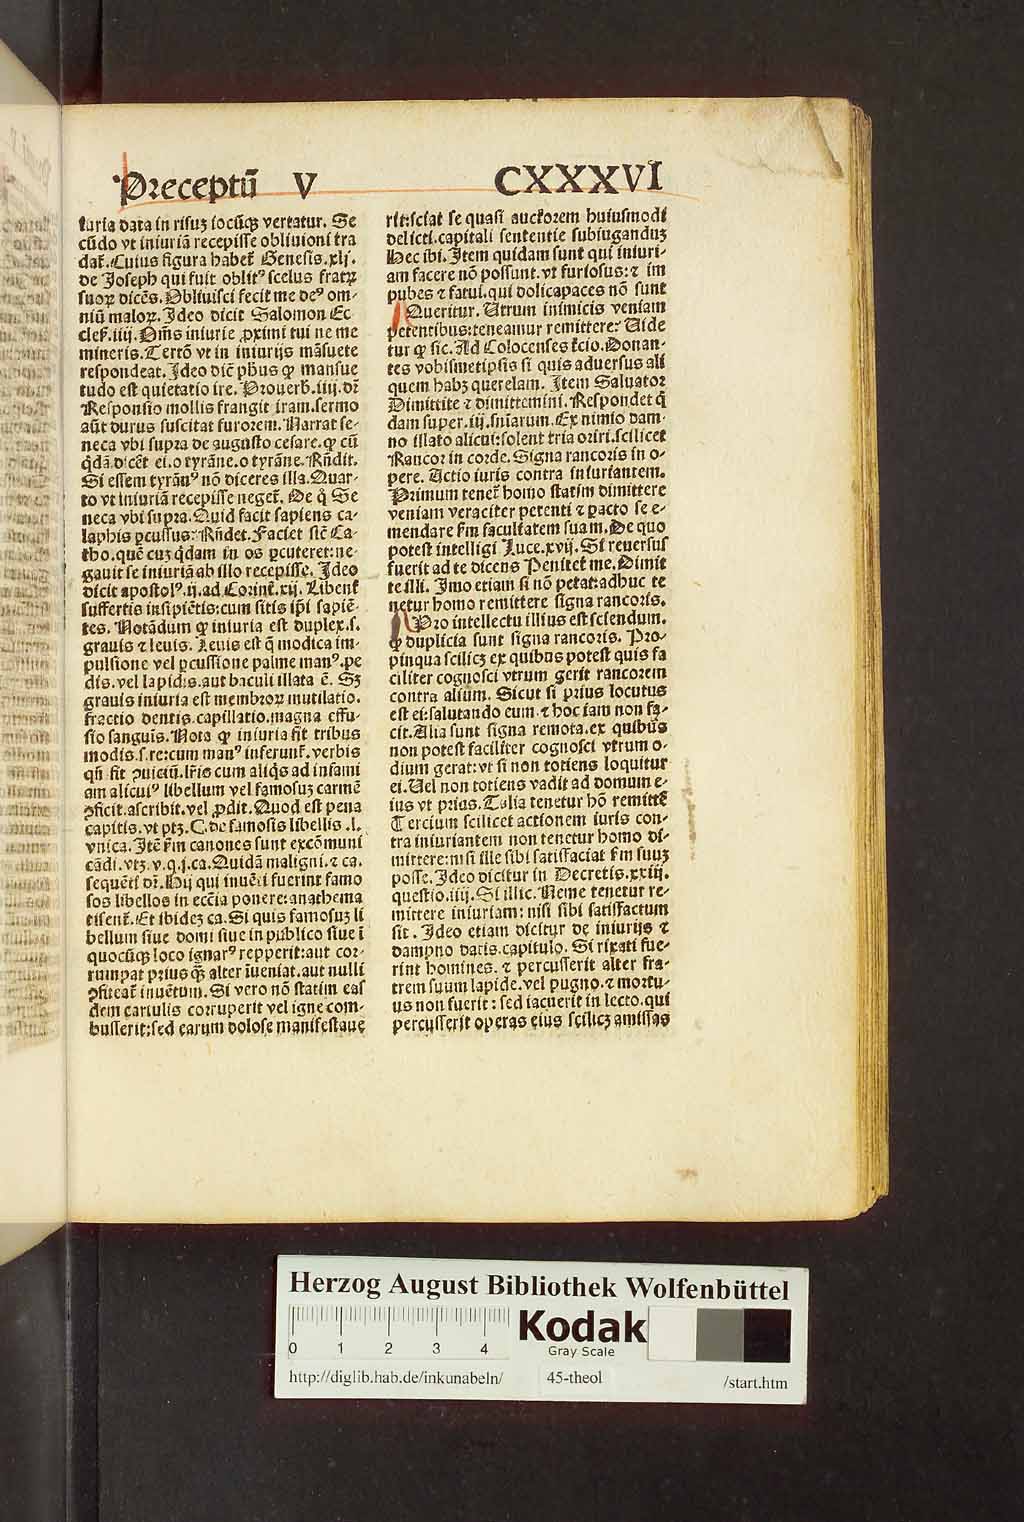 Preceptū V CXXXVI
turia data in risuʒ iocūqʒ vertatur. Se
cūdo vt iniuriā recepisse obliuioni tra
dat᷑. Cuius figura habet᷑ Genesis. xlj.
de Joseph qui fuit oblitꝰ scelus fratrꝝ
suoꝝ dicēs. Obliuisci fecit me deꝰ om-
niū maloꝝ. Ideo dicit Salomon Ec
cles̄. iiij. Om̄s iniurie ꝓximi tui ne me
mineris. Tertō vt in iniurijs māsuete
respondeat. Ideo dic̄ ph̄us ꝙ mansue
tudo est quietatio ire. Prouerb̄. iiij. dr̄
Responsio mollis frangit iram. sermo
aūt durus suscitat furorem. Narrat se-
neca vbi supra de augusto cesare. ꝙ cū
q̄dā dicēt ei. o tyrāne. o tyrāne. Rn̄dit.
Si essem tyrānꝰ nō diceres illa. Quar-
to vt iniuriā recepisse neget᷑. De q̄ Se
neca vbi supra. Quid facit sapiens ca-
laphis ꝑcussus: Rn̄det. Faciet sic̄ Ca-
tho. quē cuʒ q̄dam in os ꝑcuteret: ne-
gauit se iniuriā ab illo recepisse. Ideo
dicit apostolꝰ. ij. ad Corint̄. xij. Libent᷑
suffertis insipiētis: cum sitis ip̄i sapiē-
tes. Notādum ꝙ iniuria est duplex. s.
grauis ⁊ leuis. Leuis est q̄ modica im-
pulsione vel ꝑcussione palme manꝰ. pe
dis. vel lapidis. aut baculi illata ē. Sʒ
grauis iniuria est membroꝝ mutilatio.
fractio dentis. capillatio. magna effu-
sio sanguis. Nota ꝙ iniuria fit tribus
modis. s. re: cum manꝰ inferunt᷑. verbis
qn̄ fit ꝯuiciū. lr̄is cum aliq̄s ad infami
am alicuiꝰ libellum vel famosuʒ carmē
ꝯficit. ascribit. vel ꝓdit. Quod est pena
capitis. vt ptʒ. C. de famosis libellis. l.
vnica. Itē s̄m canones sunt excōmuni
cādi. vtʒ. v. q. j. ca. Quidā maligni. ⁊ ca.
sequēti dr̄. Hij qui inuēti fuerint famo
sos libellos in ecc̄ia ponere: anathema
tisent᷑. Et ibideʒ ca. Si quis famosuʒ li
bellum siue domi siue in publico siue ī
quocūqʒ loco ignarꝰ repperit: aut cor-
rumpat prius qʒ̄ alter īueniat. aut nulli
ꝯfiteat᷑ inuētum. Si vero nō statim eas
dem cartulis corruperit vel igne com-
busserit: sed earum dolose manifestaue
rit: sciat se quasi auctorem huiusmodi
delicti. capitali sententie subiuganduʒ
Hec ibi. Item quidam sunt qui iniuri-
am facere nō possunt. vt furiosus: ⁊ im
pubes ⁊ fatui. qui dolicapaces nō sunt
Queritur. Utrum inimicis veniam
petentibus: teneamur remittere: Uide
tur ꝙ sic. Ad Colocenses t̄cio. Donan-
tes vobismetipsis si quis aduersus ali
quem habʒ querelam. Item Saluator
Dimittite ⁊ dimittemini. Respondet q̄
dam super. iij. sn̄iarum. Ex nimio dam-
no illato alicui: solent tria oriri. scilicet
Rancor in corde. Signa rancoris in o-
pere. Actio iuris contra iniuriantem.
Primum tenet᷑ homo statim dimittere
veniam veraciter petenti ⁊ ꝑacto se e-
mendare s̄m facultatem suam. De quo
potest intelligi Luce. xvij. Si reuersus
fuerit ad te dicens Penitet me. Dimit
te illi. Imo etiam si nō petat: adhuc te
netur homo remittere signa rancoris.
Pro intellectu illius est sciendum.
ꝙ duplicia sunt signa rancoris. Pro-
pinqua scilicʒ ex quibus potest quis fa
ciliter cognosci vtrum gerit rancorem
contra alium. Sicut si prius locutus
est ei: salutando eum. ⁊ hoc iam non fa-
cit. Alia sunt signa remota. ex quibus
non potest faciliter cognosci vtrum o-
dium gerat: vt si non totiens loquitur
ei. Uel non totiens vadit ad domum e-
ius vt prius. Talia tenetur hō remitte
Tercium scilicet actionem iuris con-
tra iniuriantem non tenetur homo di-
mittere: nisi ille sibi satisfaciat s̄m suuʒ
posse. Ideo dicitur in Decretis. xxiij.
questio. iiij. Si illic. Neme tenetur re-
mittere iniuriam: nisi sibi satisfactum
sit. Ideo etiam dicitur de iniurijs ⁊
dampno datis. capitulo. Si rixati fue-
rint homines. ⁊ percusserit alter fra-
trem suum lapide. vel pugno. ⁊ mortu-
us non fuerit: sed iacuerit in lecto. qui
percusserit operas eius scilicʒ amissas
Herzog August Bibliothek Wolfenbüttel
0 1 2 3 4
Kodak
Gray Scale
http://diglib.hab.de/inkunabeln/ 45-theol /start.htm